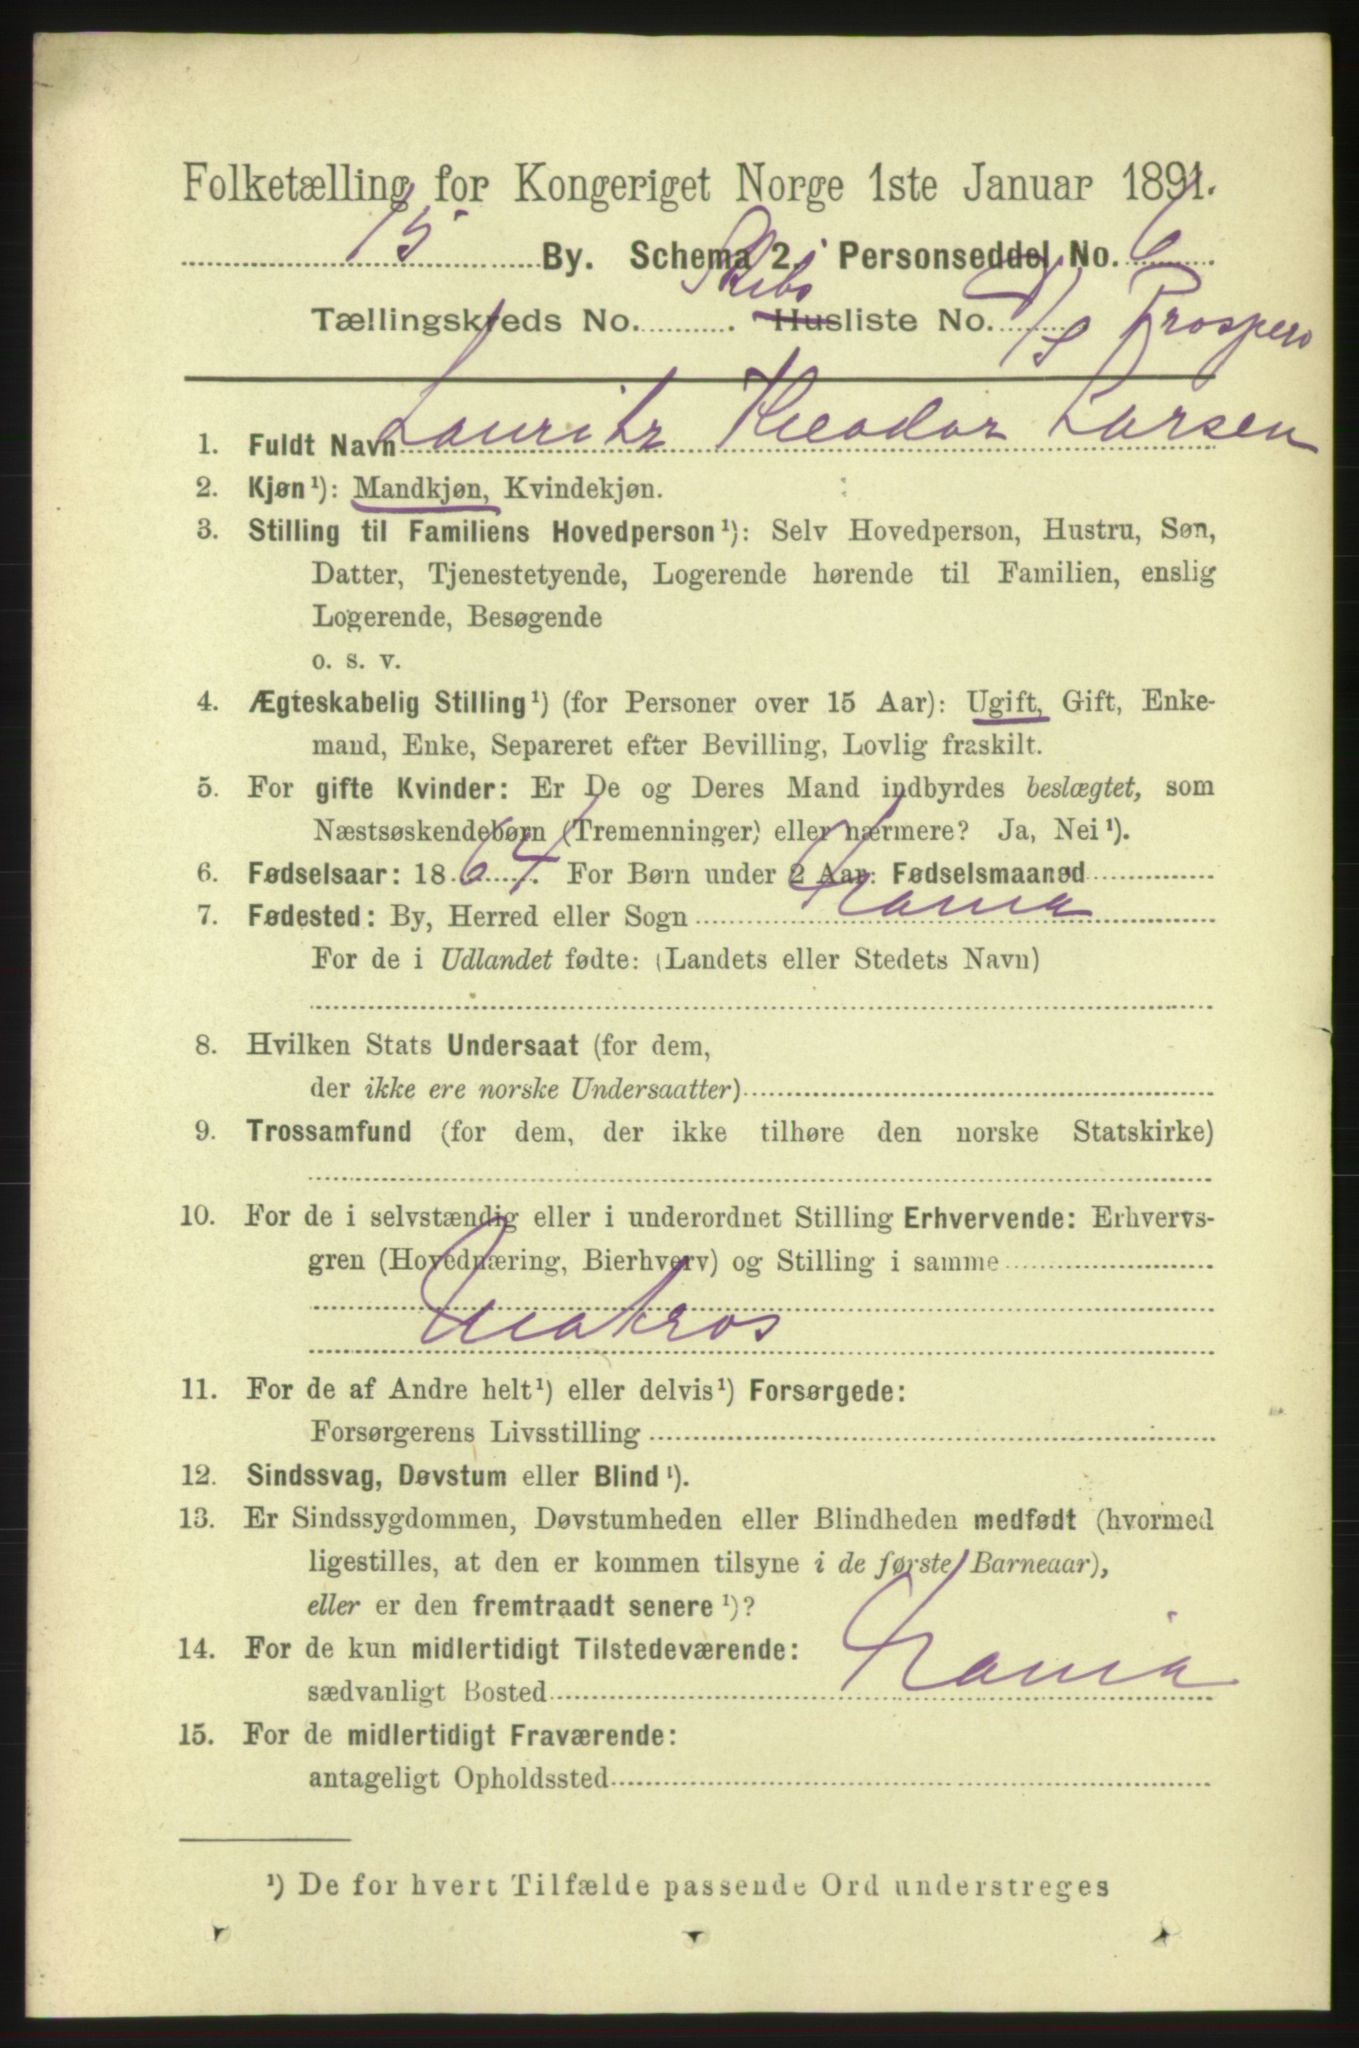 Folketælling for Kongeriget Norge 1ste Januar 1891.
15 By. Schema 2. Personseddel No. 6
Skibs
Tællingskreds No. . Husliste No. D/S Prospero
1. Fuldt Navn Lauritz Theodor Larsen
2. Kjøn¹): Mandkjøn, Kvindekjøn.
3. Stilling til Familiens Hovedperson¹): Selv Hovedperson, Hustru, Søn,
Datter, Tjenestetyende, Logerende hørende til Familien, enslig
Logerende, Besøgende
o. s. v.
4. Ægteskabelig Stilling¹) (for Personer over 15 Aar): Ugift, Gift, Enke-
mand, Enke, Separeret efter Bevilling, Lovlig fraskilt.
5. For gifte Kvinder: Er De og Deres Mand indbyrdes beslægtet, som
Næstsøskendebørn (Tremenninger) eller nærmere? Ja, Nei¹).
6. Fødselsaar: 1864. For Børn under 2 Aar: Fødselsmaaned
7. Fødested: By, Herred eller Sogn Xania
For de i Udlandet fødte: (Landets eller Stedets Navn)
8. Hvilken Stats Undersaat (for dem,
der ikke ere norske Undersaatter)
9. Trossamfund (for dem, der ikke tilhøre den norske Statskirke)
10. For de i selvstændig eller i underordnet Stilling Erhvervende: Erhvervs-
gren (Hovednæring, Bierhverv) og Stilling i samme
Matros
11. For de af Andre helt¹) eller delvis¹) Forsørgede:
Forsørgerens Livsstilling
12. Sindssvag, Døvstum eller Blind¹).
13. Er Sindssygdommen, Døvstumheden eller Blindheden medfødt (hvormed
ligestilles, at den er kommen tilsyne i de første Barneaar),
eller er den fremtraadt senere¹)?
14. For de kun midlertidigt Tilstedeværende:
sædvanligt Bosted Xania
15. For de midlertidigt Fraværende:
antageligt Opholdssted
¹) De for hvert Tilfælde passende Ord understreges